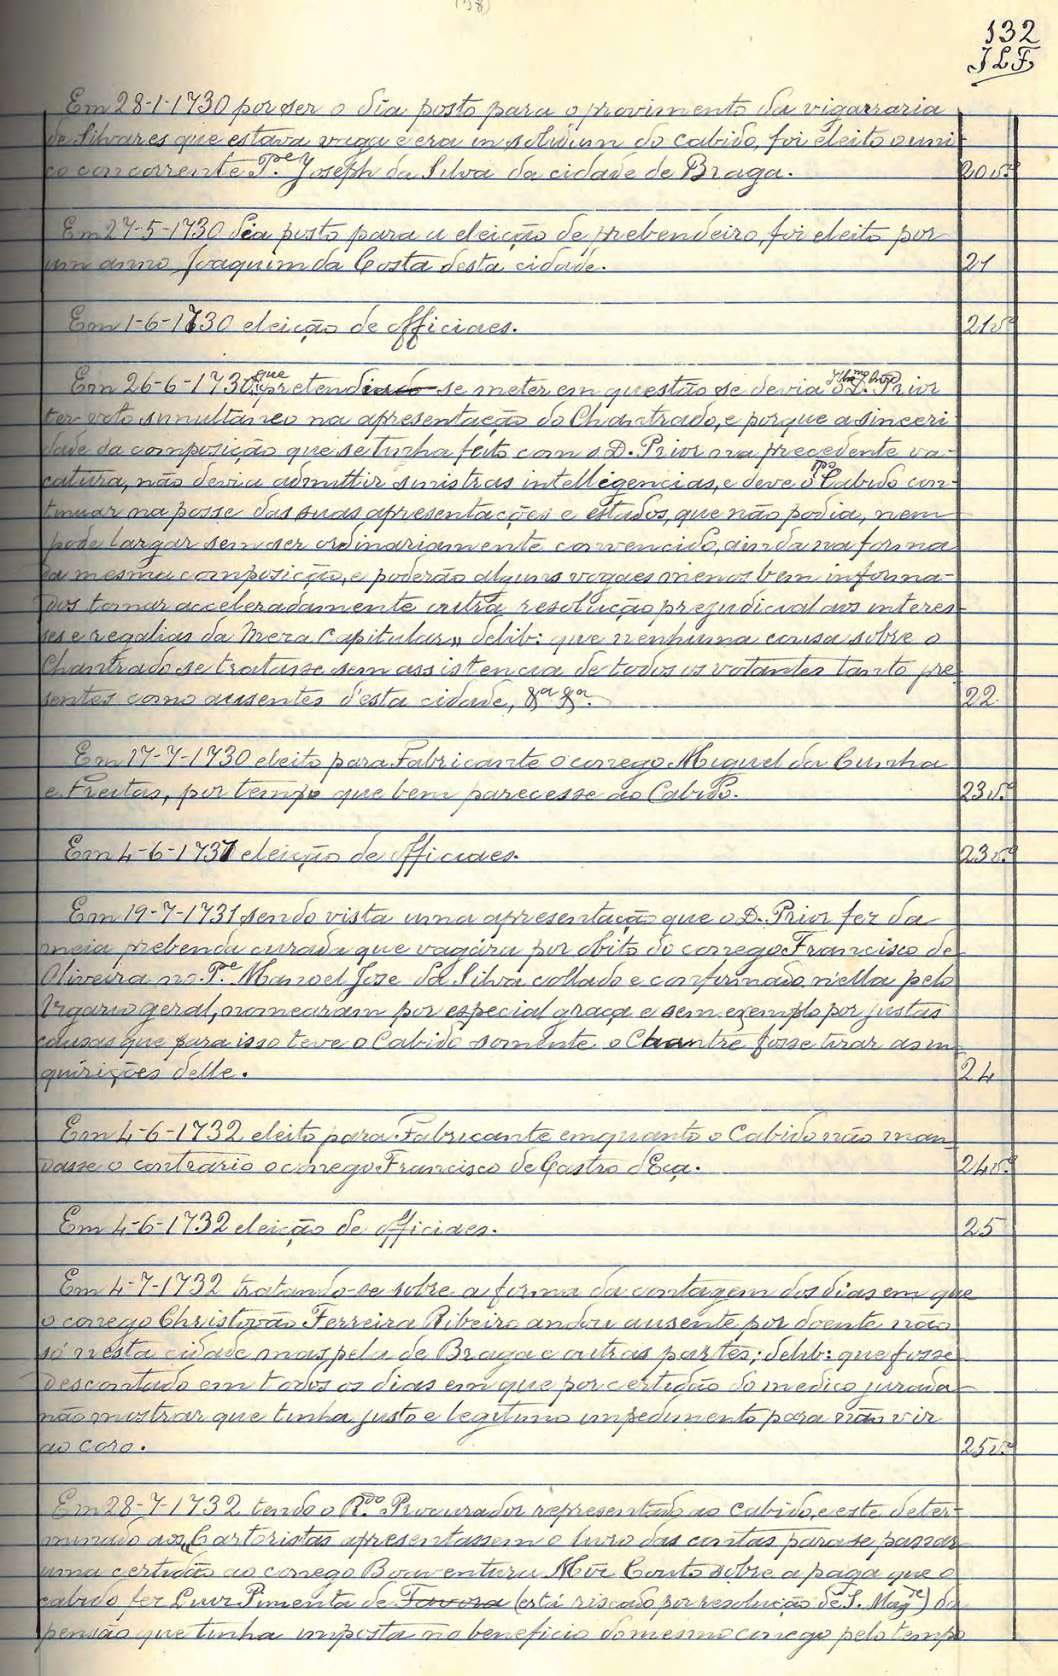 (38)
132
JLF
Em 28-1-1730 por ser o dia posto para o provimento da vigarraria
de Silvares que estava vaga e era in solidum do cabido, foi eleito o uni-
co concorrente P.e Joseph da Silva da cidade de Braga. 20v.º
Em 27-5-1730 dia posto para a eleição de prebendeiro, foi eleito por
um anno Joaquim da Costa desta cidade. 21
Em 1-6-1730 eleição de officiaes. 21v.º
Em 26-6-1730 que pretendiado se meter em questão se devia o D. Prior
ter voto simultaneo na apresentação do Chantrado, e porque a sinceri
dade da composição que se tinha feito com o D. Prior na precedente va-
catura, não devia admittir sinistras intelligencias, e deve o Cabido con-
tinuar na posse das suas apresentações e estados, que não podia, nem
pode largar sem ser ordinariamente convencido, ainda na forma
da mesma composição, e poderão alguns vogaes menos bem informa-
dos tomar acceleradamente outra resolução prejudicial aos interes-
ses e regalias da Meza Capitular,, delib: que nenhuma cousa sobre o
Chantrado se tratasse sem assistencia de todos os votantes tanto pre
sentes como ausentes d'esta cidade, &ª &ª. 22
Em 17-7-1730 eleito para Fabricante o conego Miguel da Cunha
e Freitas, por tempo que bem parecesse ao Cabido. 23v.º
Em 4-6-1731 eleição de officiaes. 23v.º
Em 19-7-1731 sendo vista uma apresentação que o D. Prior fez da
meia prebenda curada que vagára por obito do conego Francisco de
Oliveira no P.e Manoel Jose da Silva collado e confirmado n'ella pelo
Vigario geral, nomearam por especial graça e sem exemplo por justas
causas que para isso teve o Cabido somente o Chantre fosse tirar as in-
quirições delle. 24
Em 4-6-1732 eleito para Fabricante emquanto o Cabido não man-
dasse o contrario o conego Francisco de Castro d'Eça. 24v.º
Em 4-6-1732 eleição de officiaes. 25
Em 4-7-1732 tratando-se sobre a forma da contagem dos dias em que
o conego Christovão Ferreira Ribeiro andou ausente por doente não
só nesta cidade mas pela de Braga e outras partes; delib: que fosse
descontado em todos os dias em que por certidão do medico jurada
não mostrar que tinha justo e legitimo impedimento para não vir
ao coro. 25v.º
Em 28-7-1732 tendo o R.do Procurador representado ao cabido, e este deter-
minado aos Cartoristas apresentassem o livro das contas para se passar
uma certidão ao conego Boaventura Mor Couto sobre a paga que o
cabido fez Luiz Pimenta de Favora (está riscado por resolução de S. Mag.de) da
pensão que tinha imposta no beneficio do mesmo conego pelo tempo